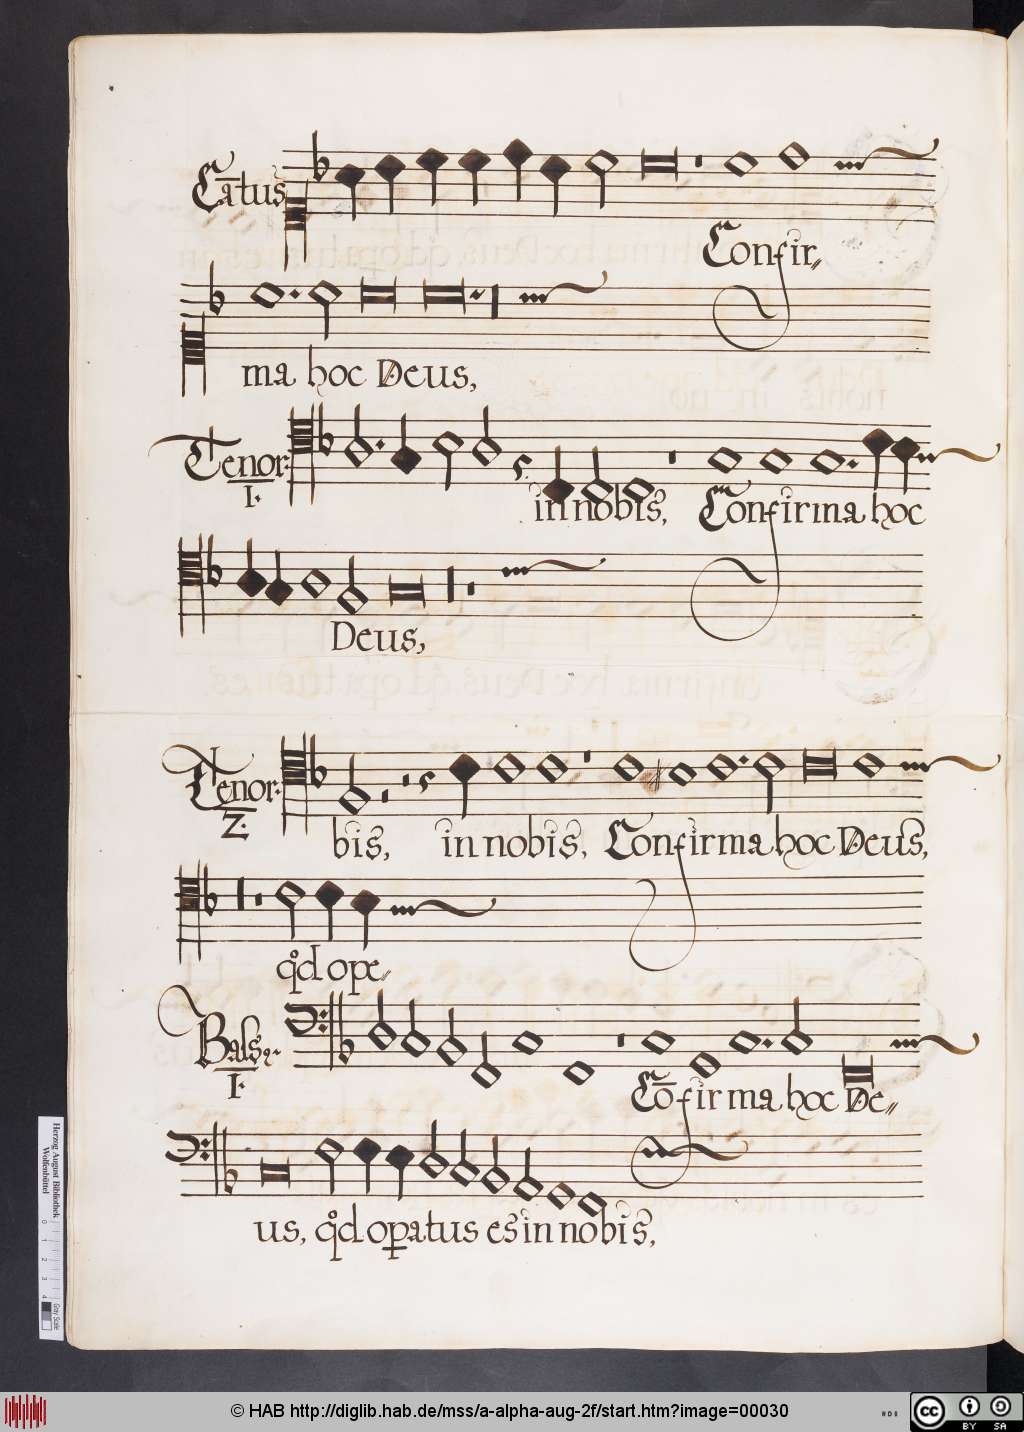 Cātus
Confir„
ma hoc Deus,
Tenor:
I.
in nobis, Confirma hoc
Deus,
Tenor:
2.
bis, in nobis, Confirma hoc Deus,
qd ope„
I.
Cōfirma hoc De„
us, qd opatus es in nobis,
Herzog August Bibliothek
Wolfenbüttel
0 1 2 3 4
Gray Scale
© HAB http://diglib.hab.de/mss/a-alpha-aug-2f/start.htm?image=00030
cc BY SA